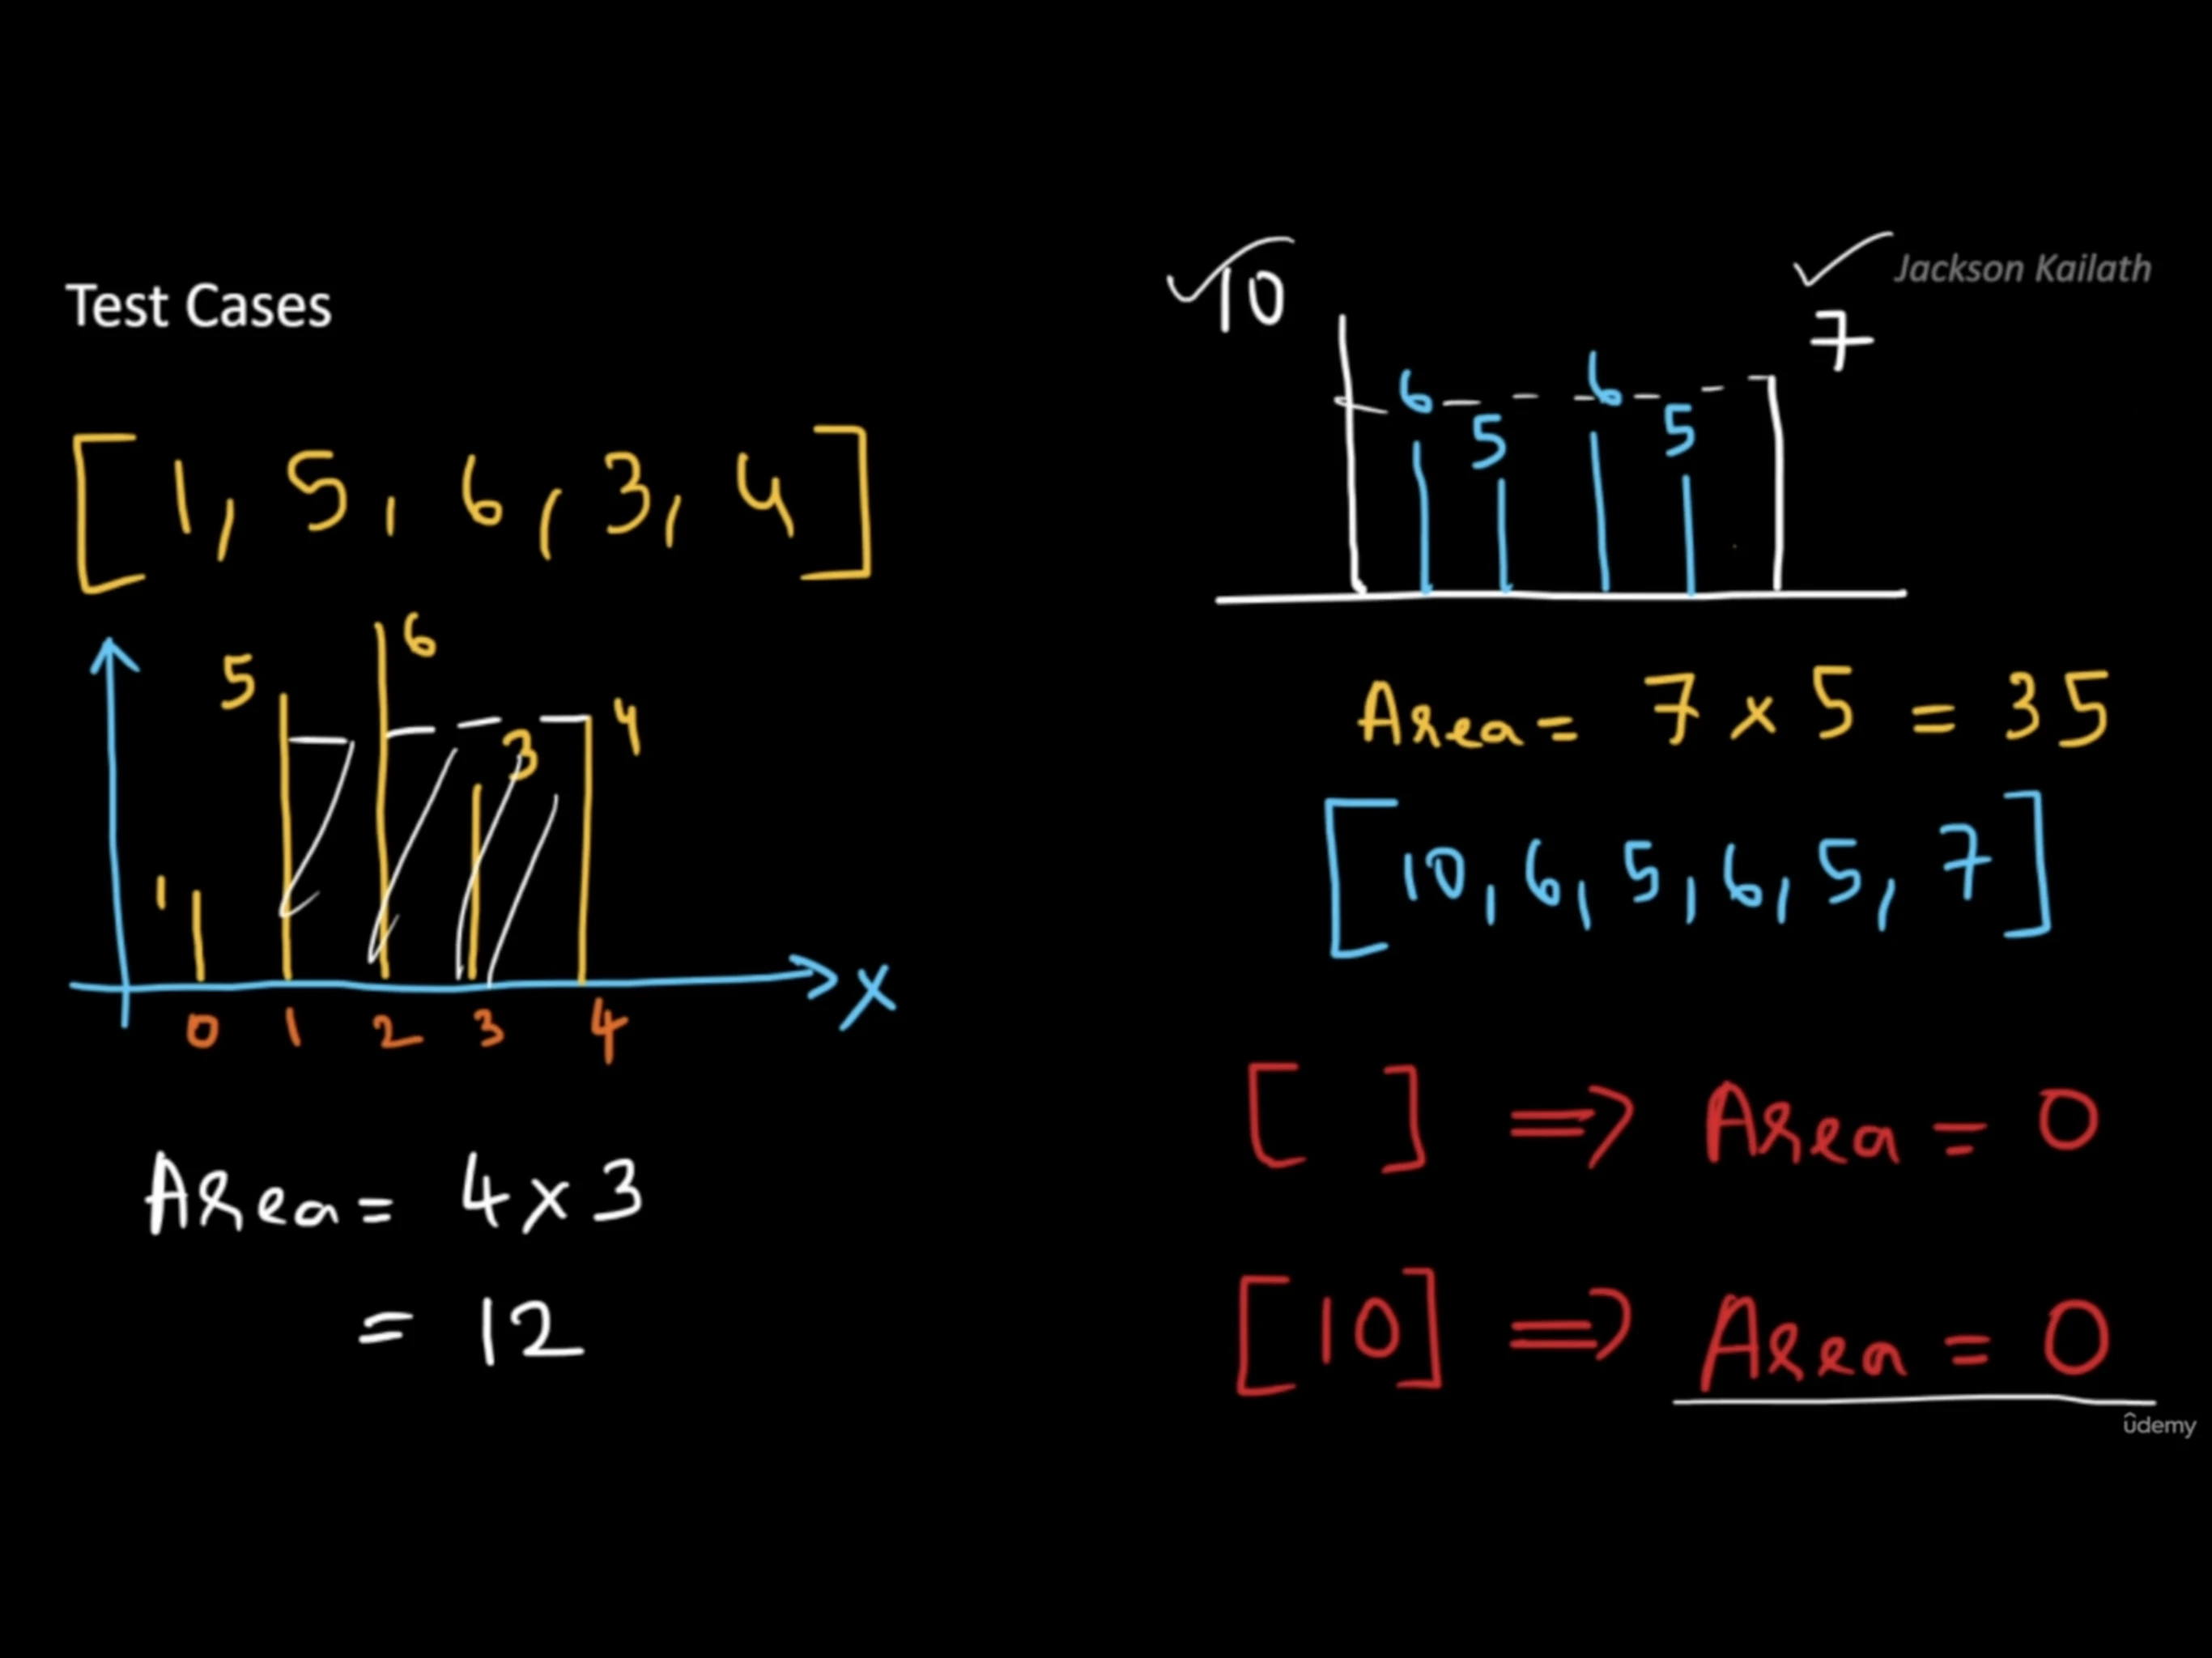 Test Cases
[1, 5, 6, 3, 4]
5 6
3 4
1
x
0 1 2 3 4
Area = 4 x 3
= 12
10 7
Jackson Kailath
6 5 6 5
Area = 7 x 5 = 35
[10, 6, 5, 6, 5, 7]
[ ] ⇒ Area = 0
[10] ⇒ Area = 0
ûdemy